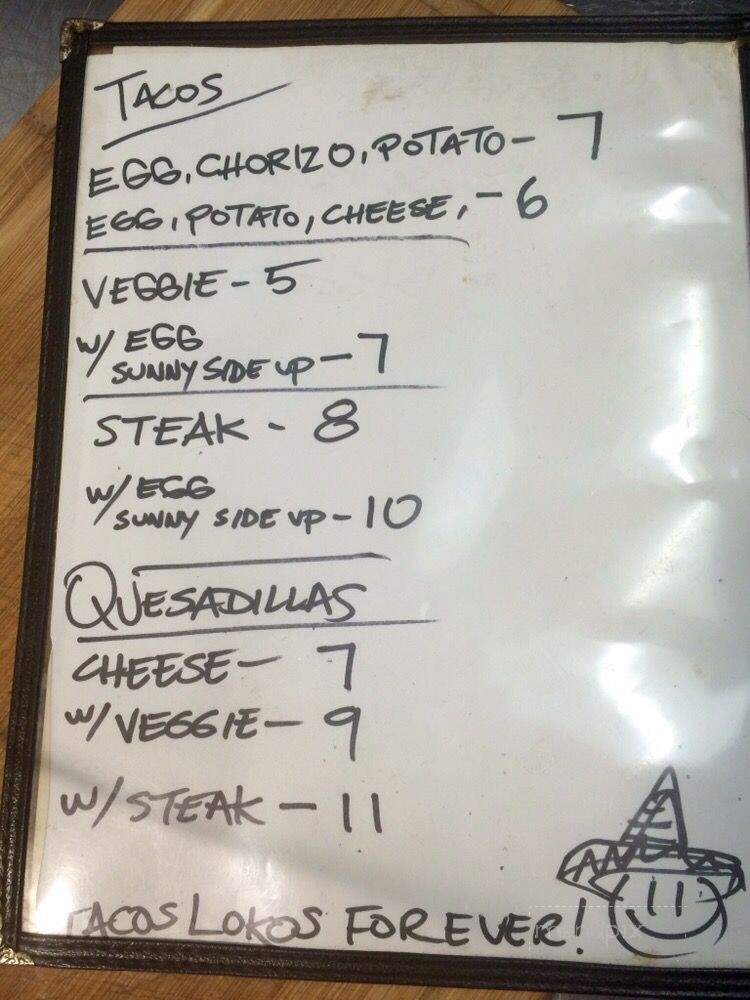 TACOS
EGG, CHORIZO, POTATO- 7
EGG, POTATO, CHEESE, -6
VEGGIE- 5
W/ EGG
SUNNY SIDE UP -7
STEAK - 8
W/ EGG
SUNNY SIDE UP -10
QUESADILLAS
CHEESE- 7
W/ VEGGIE- 9
W/ STEAK - 11
TACOS LOKOS FOREVER!